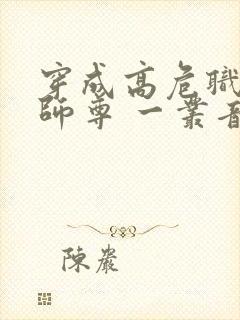 穿成高危職
師尊 一叢音
陳巖